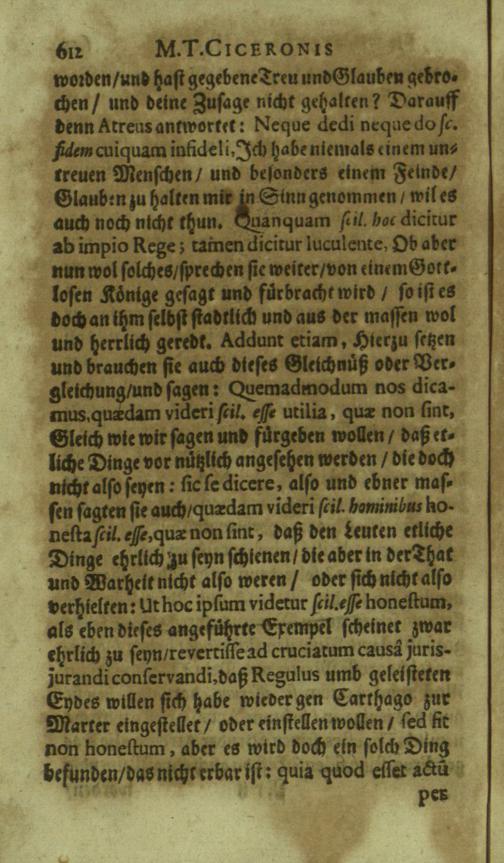 612 M. T. CICERONIS
worden/und hast gegebene Treu und Glauben gebro-
chen/ und deine Zusage nicht gehalten? Darauff
denn Atreus antwortet: Neque dedi neque do sc.
fidem cuiquam infideli, Jch habe niemals einem un-
treuen Menschen/ und besonders einem Feinde/
Glauben zu halten mir in Sinn genommen/ wil es
auch noch nicht thun. Quanquam scil. hoc dicitur
ab impio Rege; tamen dicitur luculente, Ob aber
nun wol solches/sprechen sie weiter/von einem Gott-
losen Könige gesagt und fürbracht wird / so ist es
doch an ihm selbst stadtlich und aus der massen wol
und herrlich geredt. Addunt etiam, Hierzu setzen
und brauchen sie auch dieses Gleichnüß oder Ver-
gleichung/und sagen: Quemadmodum nos dica-
mus, quædam videri scil. esse utilia, quæ non sint,
Gleich wie wir sagen und fürgeben wollen/ daß et-
liche Dinge vor nützlich angesehen werden/ die doch
nicht also seyen: sic se dicere, also und ebner mas-
sen sagten sie auch/quædam videri scil. hominibus ho-
nesta scil. esse, quæ non sint, daß den Leuten etliche
Dinge ehrlich zu seyn schienen/ die aber in der That
und Warheit nicht also weren/ oder sich nicht also
verhielten: Ut hoc ipsum videtur scil. esse honestum,
als eben dieses angeführte Exempel scheinet zwar
ehrlich zu seyn/revertisse ad cruciatum causâ juris-
jurandi conservandi, daß Regulus umb geleisteten
Eydes willen sich habe wieder gen Carthago zur
Marter eingestellet/ oder einstellen wollen/ sed fit
non honestum, aber es wird doch ein solch Ding
befunden/das nicht erbar ist: quia quod esset actū
per